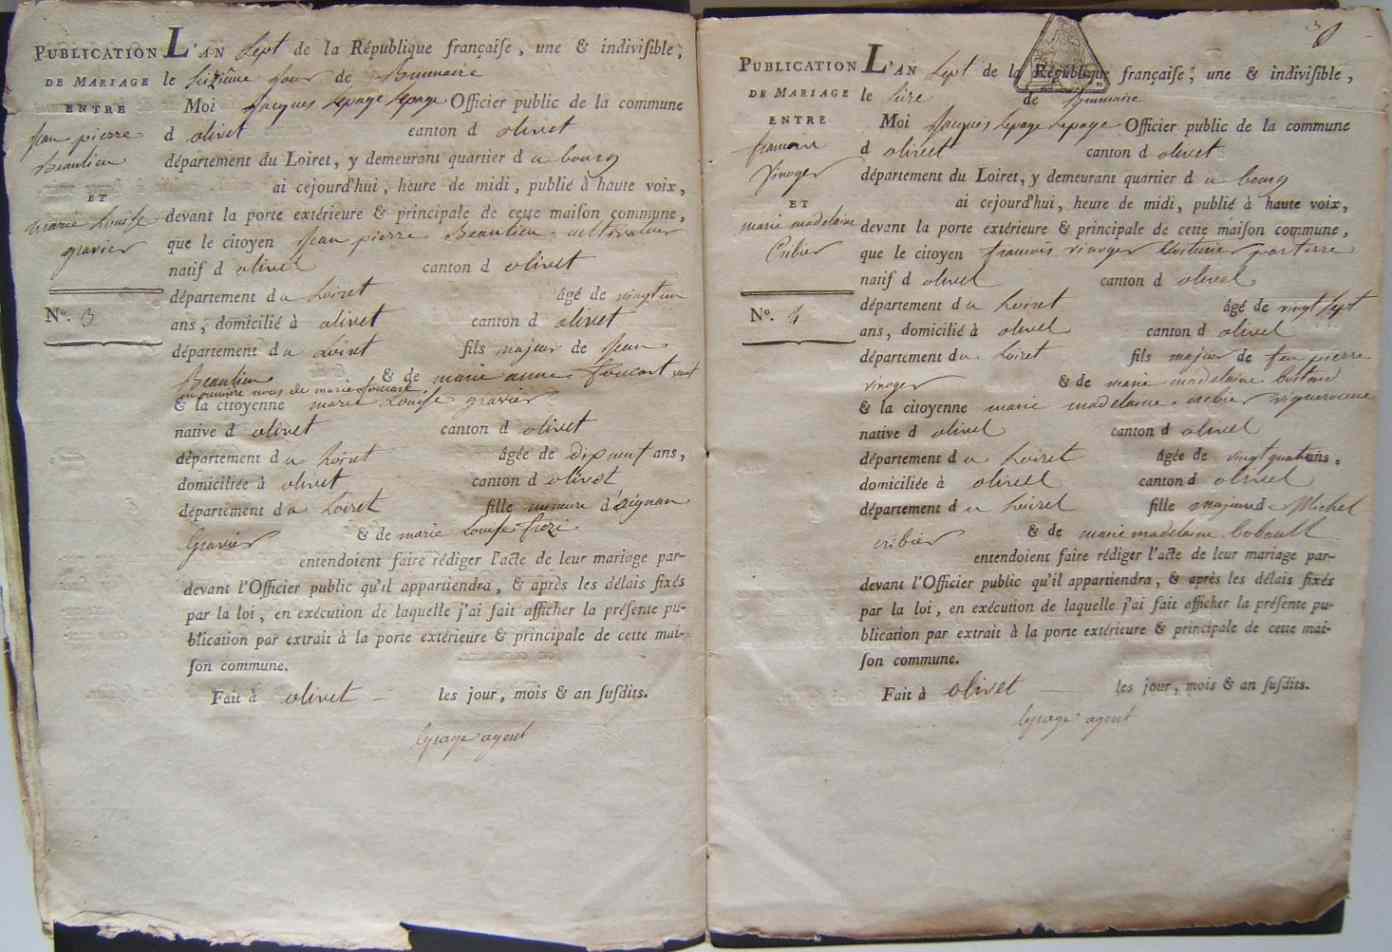 PUBLICATION
DE MARIAGE
ENTRE
jean pierre
Beaulieu
ET
marie Louise
gravier
N°. 3
L'AN sept de la République françaiſe, une & indiviſible,
le seizième jour de Brumaire
Moi Jacques Lepage Lepage Officier public de la commune
d olivet canton d olivet
département du Loiret, y demeurant quartier d u bourg
ai cejourd'hui, heure de midi, publié à haute voix,
devant la porte extérieure & principale de cette maiſon commune,
que le citoyen Jean pierre Beaulieu cultivateur
natif d olivet canton d olivet
département du Loiret âgé de vingt un
ans, domicilié à olivet canton d olivet
département du Loiret fils majeur de Jean
Beaulieu & de marie anne foucart
& la citoyenne marie Louise gravier
native d olivet canton d olivet
département du Loiret âgée de dixneuf ans,
domiciliée à olivet canton d olivet
département du Loiret fille mineure d'aignan
Gravier & de marie Louise
entendoient faire rédiger l'acte de leur mariage par-
devant l'Officier public qu'il appartiendra, & après les délais fixés
par la loi, en exécution de laquelle j'ai fait afficher la préſente pu-
blication par extrait à la porte extérieure & principale de cette mai-
ſon commune.
Fait à olivet les jour, mois & an ſuſdits.
lepage agent
PUBLICATION
DE MARIAGE
ENTRE
francois
Vinoger
ET
marie madelaine
Cribier
N°. 4
L'AN sept de la République françaiſe, une & indiviſible,
le de Brumaire
Moi Jacques Lepage Lepage Officier public de la commune
d olivet canton d olivet
département du Loiret, y demeurant quartier d u bourg
ai cejourd'hui, heure de midi, publié à haute voix,
devant la porte extérieure & principale de cette maiſon commune,
que le citoyen francois vinoger
natif d olivet canton d olivet
département du Loiret âgé de vingt sept
ans, domicilié à olivet canton d olivet
département du Loiret fils majeur de feu pierre
vinoger & de marie madelaine
& la citoyenne marie madelaine cribier vigneronne
native d olivet canton d olivet
département du Loiret âgée de vingt quatre ans,
domiciliée à olivet canton d olivet
département du Loiret fille majeur d Michel
cribier & de marie madelaine
entendoient faire rédiger l'acte de leur mariage par-
devant l'Officier public qu'il appartiendra, & après les délais fixés
par la loi, en exécution de laquelle j'ai fait afficher la préſente pu-
blication par extrait à la porte extérieure & principale de cette mai-
ſon commune.
Fait à olivet les jour, mois & an ſuſdits.
lepage agent